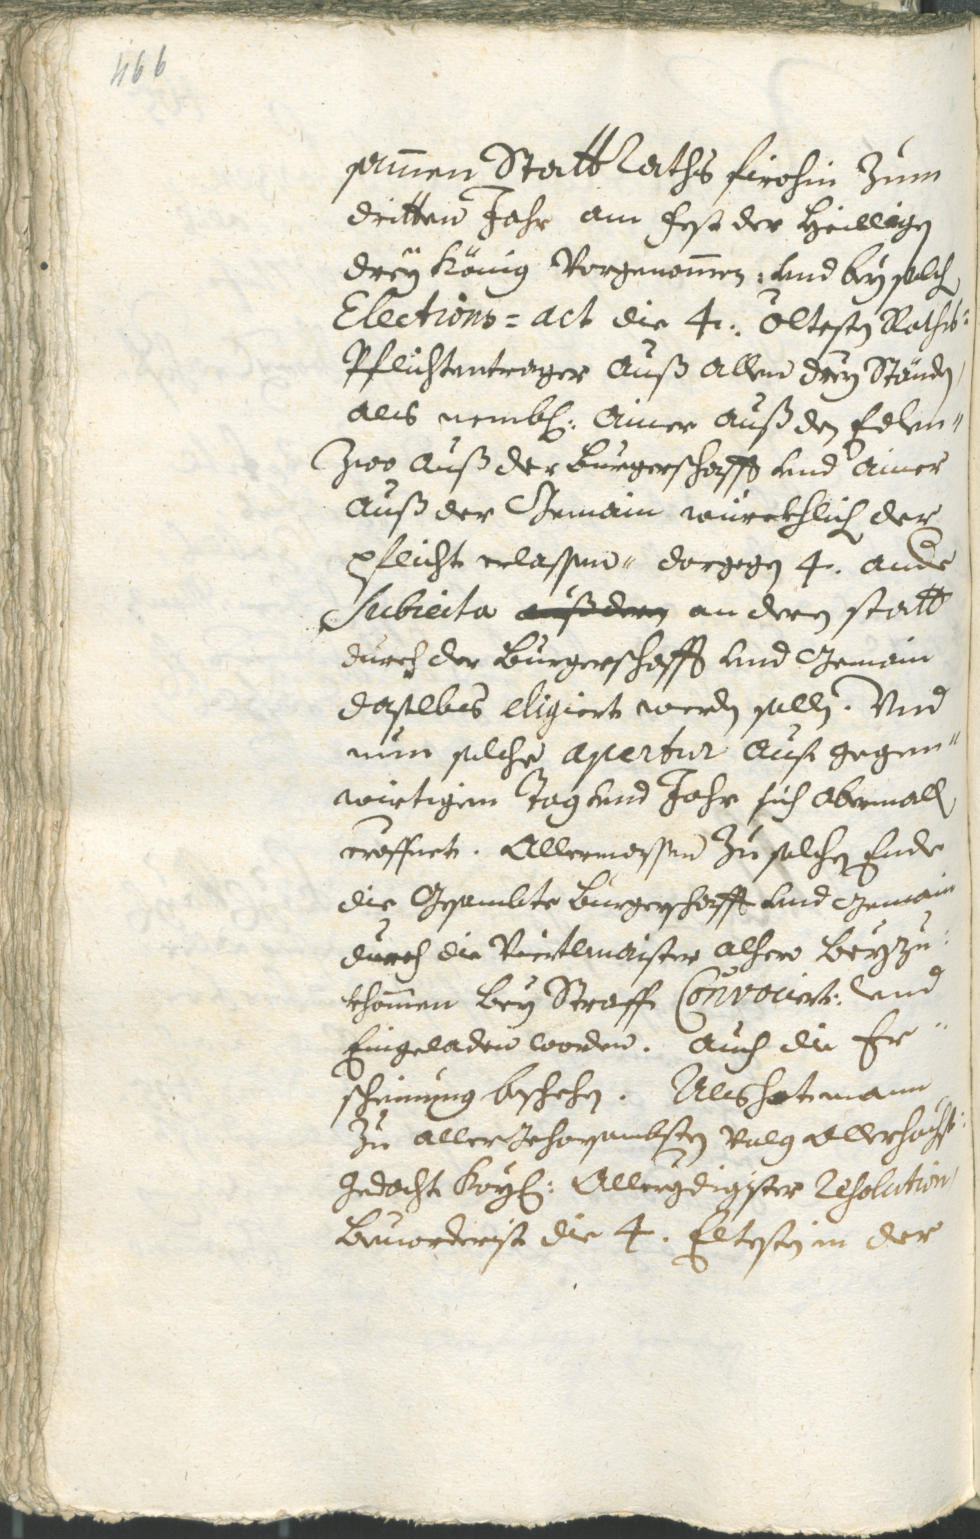 466
samen Statt Raths firohin zum
dritten Jahr am Fest der Heilligen
dreÿ König Vorgenommen: und beÿ solch
Elections= act die 4. Öltesten Raths=
Pflichtentrager auß allen dreÿ Ständen
als nembl: ainer auß den Edlen"
Zwo auß der Burgerschafft und ainer
auß der Gemain würckhlich der
pflicht erlassen" dargegen 4. ande
Subiecta außdem an deren statt
durch der Burgerschafft und Gemain
daselbs eligiert werden sollen. Und
nun solche apertur auf gegen"
wirtigem Tag und Jahr sich abermall
eröffnet. Allermassen zu solchen Ende
die Gesambte Burgerschafft und Gemain
durch die Viertlmaister alhero beÿzu=
khommen beÿ Straff Convociert: und
Eingeladen worden. Auch die Er"
scheinung beschehen. Als hat mann
zu aller gehorsambsten volg allerhöchst=
gedacht Kaÿl: Allergdigister Resolution
Bevorderist die 4. Eltesten in der